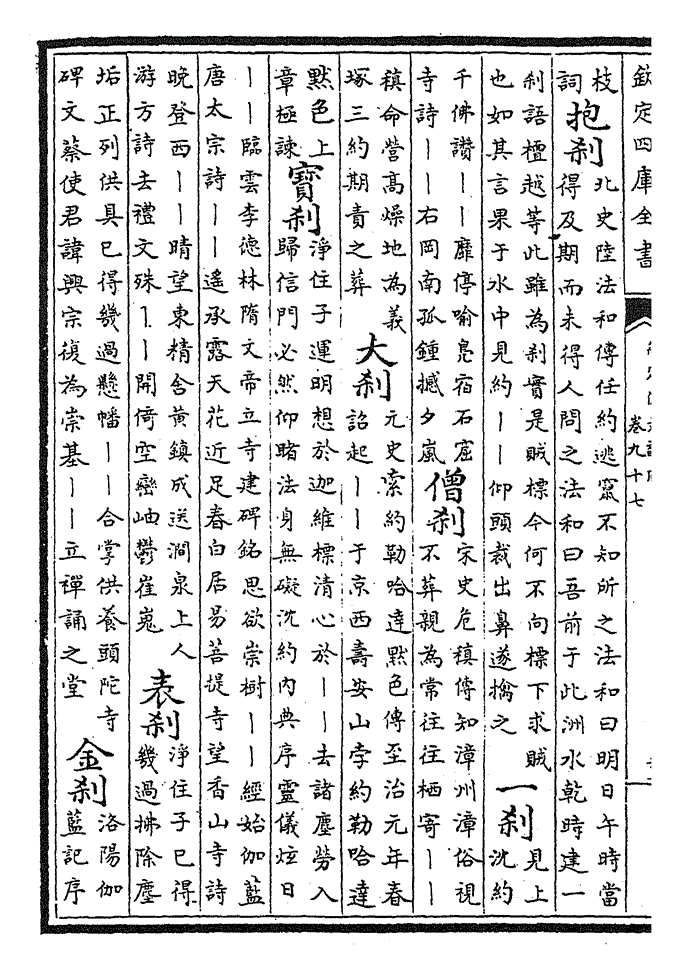 欽定四庫全書
卷九十七
枝
詞
抱刹
北史陸法和傳任約逃竄不知所之法和曰明日午時當
得及期而未得人問之法和曰吾前于此洲水乾時建一
刹語檀越等此雖為刹實是賊標今何不向標下求賊
也如其言果于水中見約丨丨仰頭裁出鼻遂擒之
一刹
見上
沈約
千佛讚丨丨靡停喻息宿石窟
寺詩丨丨右岡南孤鍾撼夕嵐
僧刹
宋史危稹傳知漳州漳俗視
不葬親為常往往栖寄丨丨
稹命營高燥地為義
塚三約期責之葬
大刹
元史索約勒哈達黙色傳至治元年春
詔起丨丨于京西壽安山孛約勒哈達
黙色上
章極諫
寶刹
淨住子運明想於迦維標清心於丨丨去諸塵勞入
歸信門必然仰睹法身無礙沈約内典序靈儀炫日
丨丨臨雲李德林隋文帝立寺建碑銘思欲崇樹丨丨經始伽藍
唐太宗詩丨丨遙承露天花近足春白居易菩提寺望香山寺詩
晚登西丨丨晴望東精舍黄鎮成送澗泉上人
游方詩去禮文殊丨丨開倚空巒岫鬱崔嵬
表刹
淨住子已得
幾過拂除塵
垢正列供具已得幾過懸幡丨丨合掌供養頭陀寺
碑文蔡使君諱興宗復為崇基丨丨立禪誦之堂
金刹
洛陽伽
藍記序